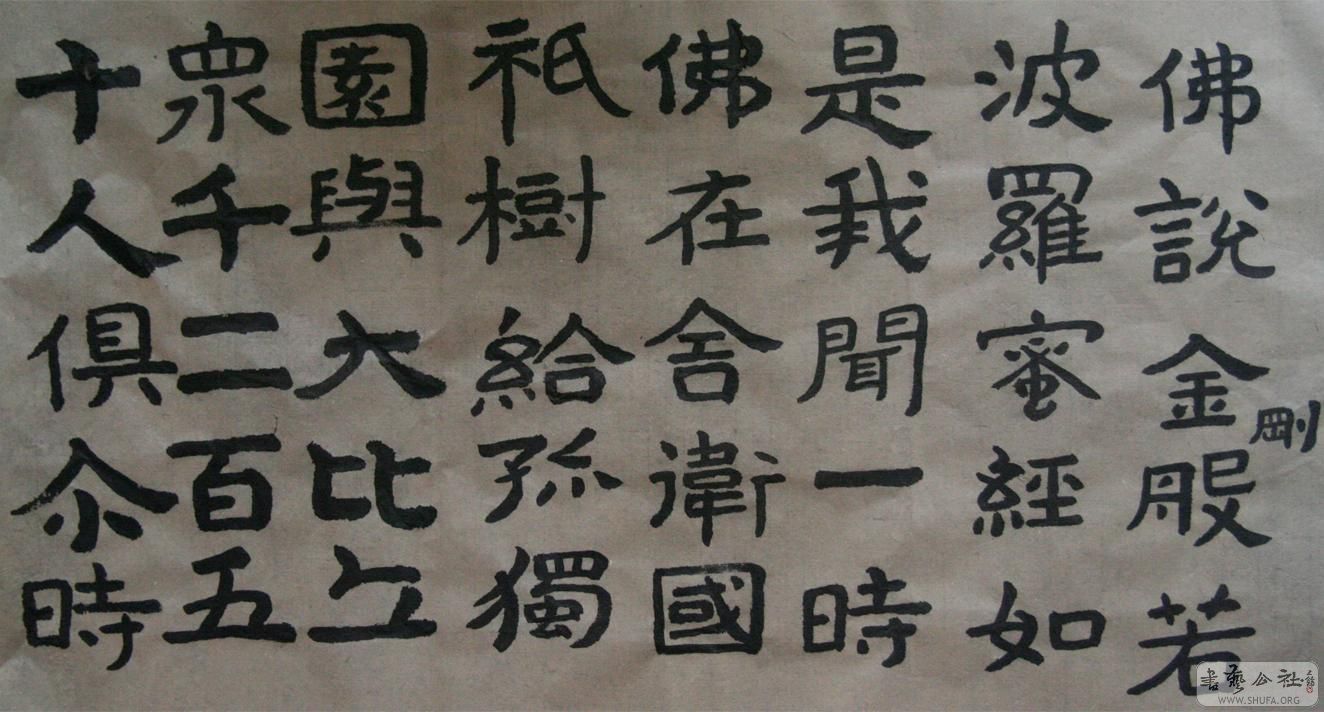 佛說金剛般若
波羅蜜經如
是我聞一時
佛在舍衛國
祇樹給孤獨
園與大比丘
眾千二百五
十人俱尒時
書藝公社
WWW.SHUFA.ORG